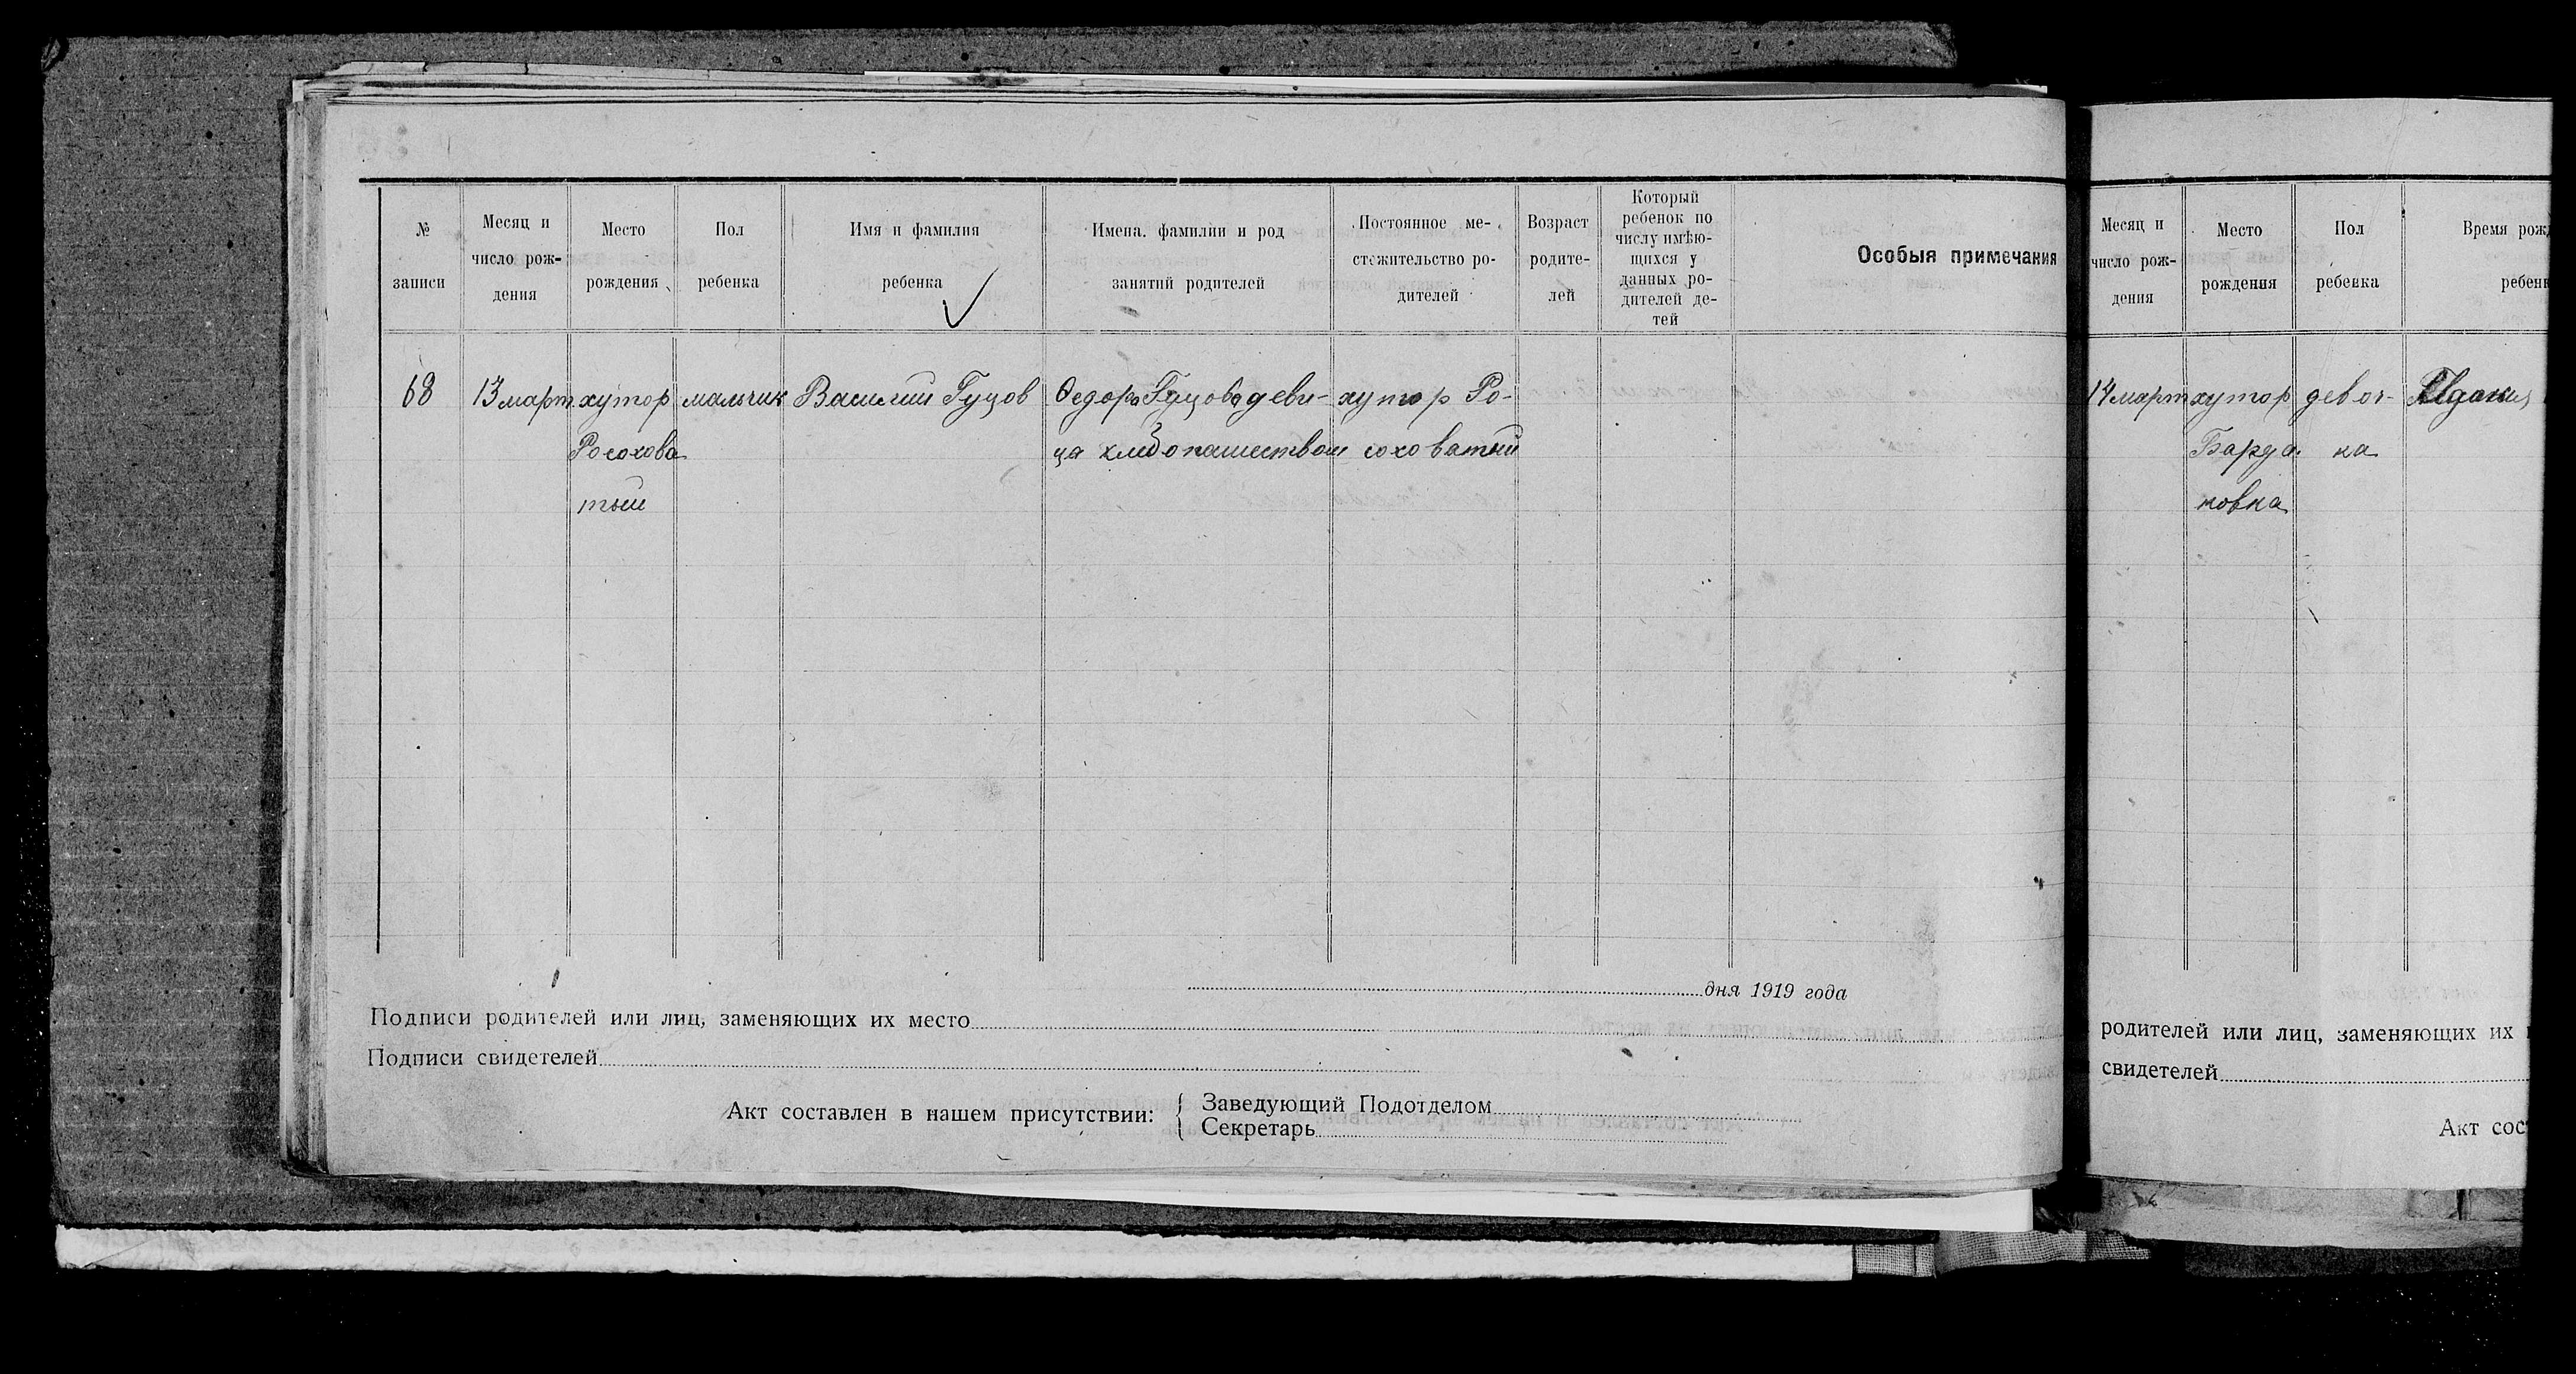 № записи
Месяц и число рож-дения
Место рождения
Пол ребенка
Имя и фамилия ребенка
Имена, фамилии и род занятий родителей
Постоянное ме-стожительство ро-дителей
Возраст родите-лей
Который ребенок по числу имѣю-щихся у данных ро-дителей де-тей
Особыя примечания
68 13 март хутор мальчик Василий Гуцов Федора Гуцова деви- хутор Ро-
Росохова ца хлебопашеством соховатый
тый
дня 1919 года
Подписи родителей или лиц, заменяющих их место
Подписи свидетелей
Акт составлен в нашем присутствии:
Заведующий Подотделом
Секретарь
Месяц и число рож-дения
Место рождения
Пол ребенка
Время рожд
ребенк
14 март хутор девоч-
Барда ка
ковка
родителей или лиц, заменяющих их
свидетелей
Акт сос